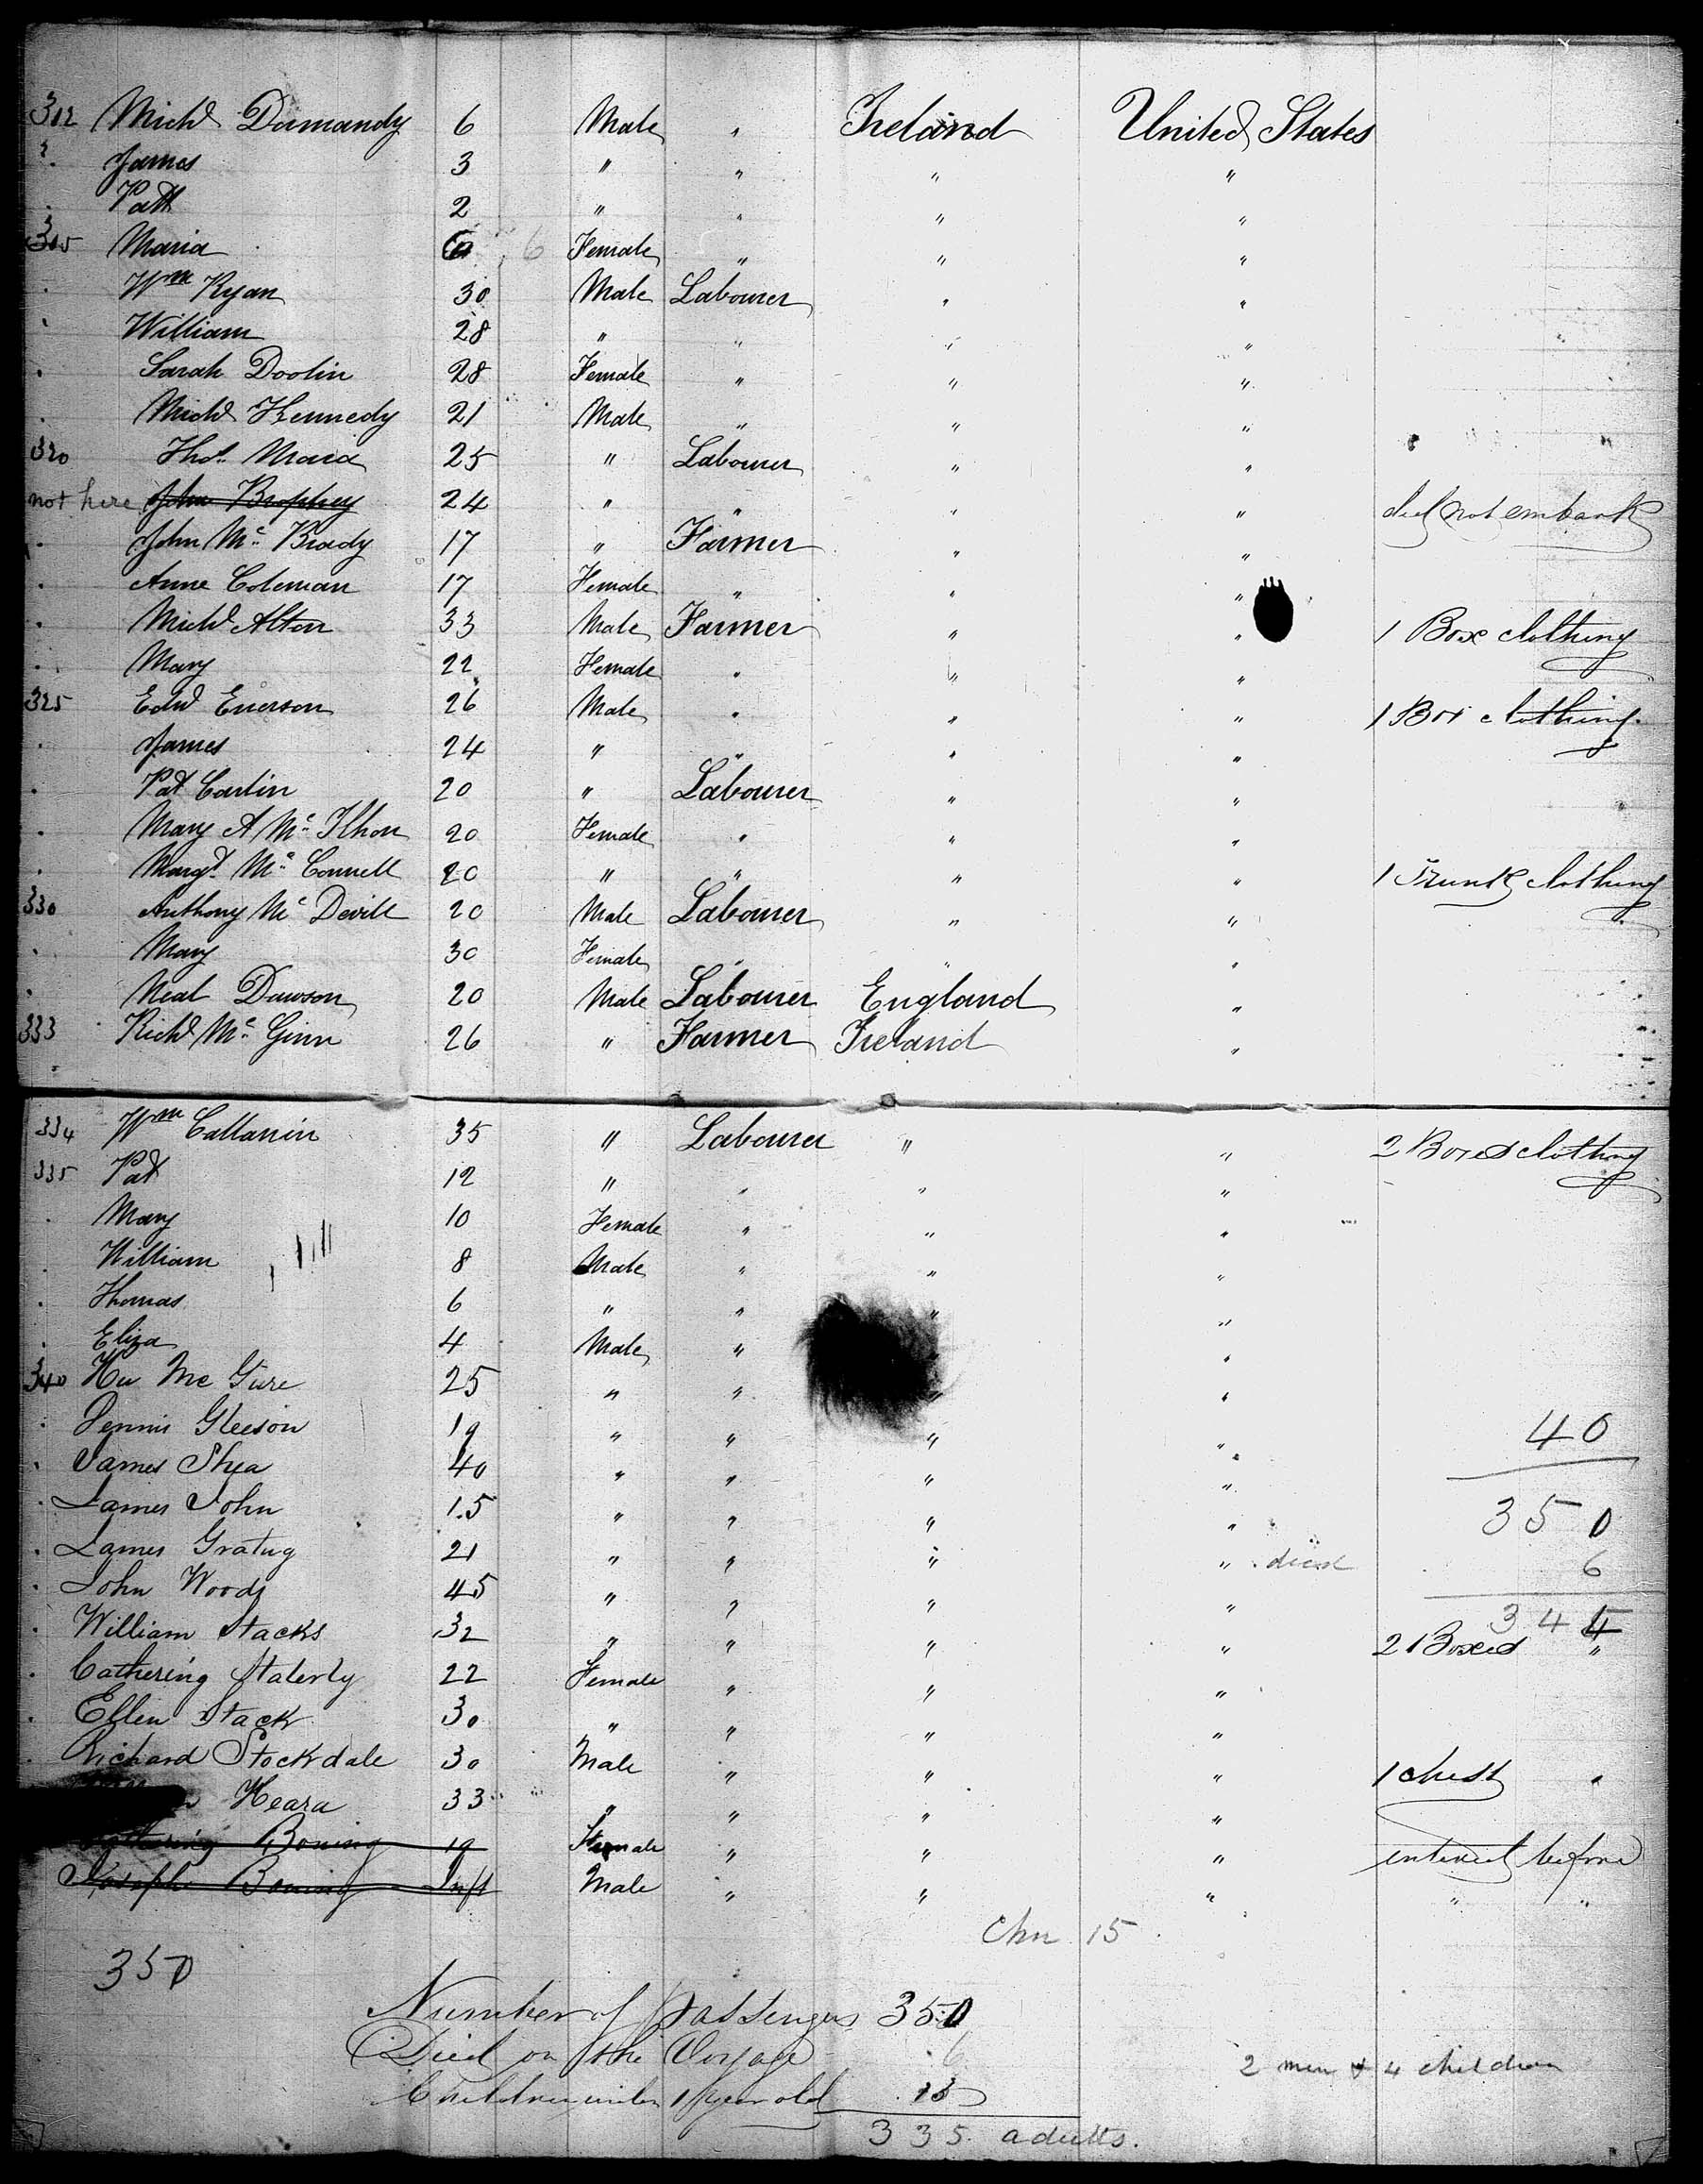 312 Michd Dumandy 6 Male " Ireland United States
James 3 " " " "
Patk 2 " " " "
315 Maria 6 Female " " "
Wm Ryan 30 Male Labourer " "
William 28 " " " "
Sarah Doolin 28 Female " " "
Michd Kennedy 21 Male " " "
320 Thos. Mara 25 " Labourer " "
not here John Brophey 24 " " " " did not embark
John Mc Brady 17 " Farmer " "
Anne Coleman 17 Female " " "
Michd Alton 33 Male Farmer " " 1 Box clothing
Mary 22 Female " " "
325 Edwd Enerson 26 Male " " " 1 Box clothing
James 24 " " " "
Pat Carlin 20 " Labourer " "
Mary A Mc Ilhon 20 Female " " "
Margt. Mc Connell 20 " " " " 1 Trunk clothing
330 Anthony Mc Devill 20 Male Labourer " "
Mary 30 Female " " "
Neal Dawson 20 Male Labourer England "
333 Richd Mc Ginn 26 " Farmer Ireland "
334 Wm Callanin 35 " Labourer " " 2 Boxes clothing
335 Pat 12 " " " "
Mary 10 Female " " "
William 8 Male " " "
Thomas 6 " " " "
Eliza 4 Male " "
340 Hu Mc Gure 25 " " " "
Dennis Gleeson 19 " " " " 40
James Shea 40 " " " "
James John 15 " " " " 350
James Gratug 21 " " " " died 6
John Woods 45 " " " "
344
William Stacks 32 " " " " 2 Boxes "
Cathering Staterly 22 Female " " "
Ellen Stack 30 " " " "
Richard Stockdale 30 Male " " " 1 chest "
Heara 33 " " " "
Cathering Boning 19 Female " " " entered before
Joseph Boning Inft Male " " " " "
Chn 15
350
Number of Passengers 350
Died on the Voyage 6 2 men & 4 children
Children under 1 year old 15
335 adults.